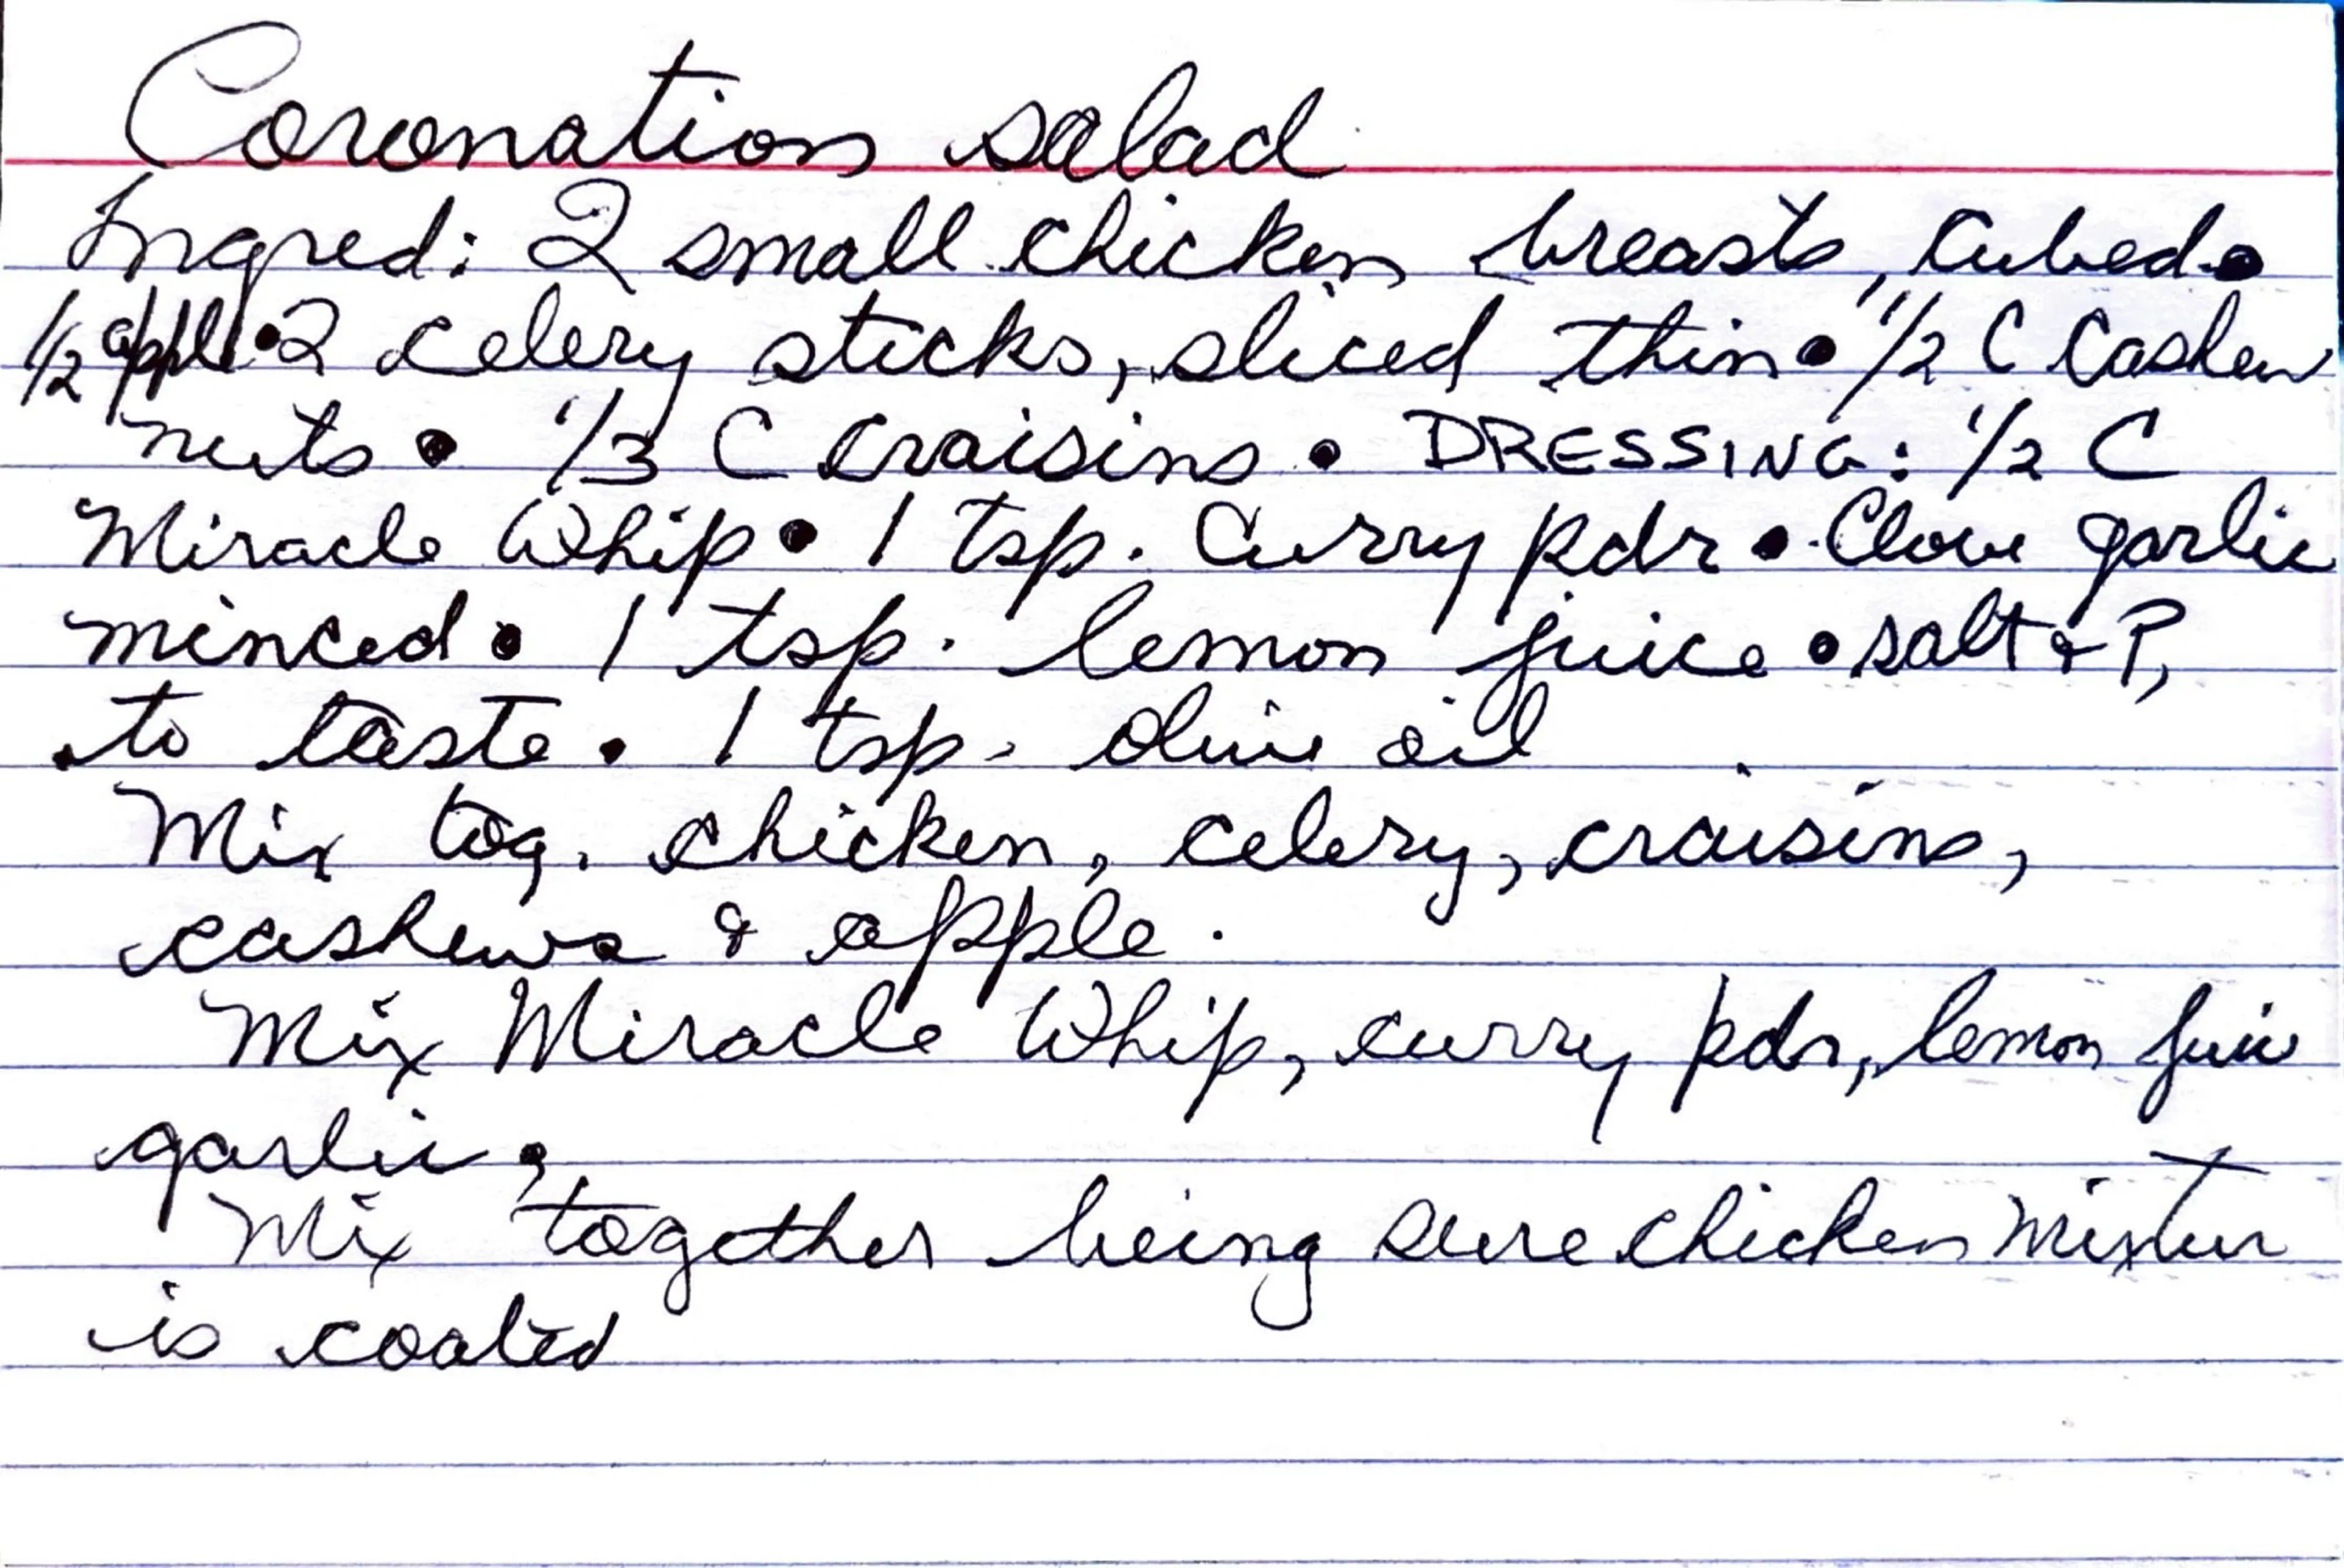 Coronation salad
Ingred: 2 small chicken breasts, cubed •
1/2 apple • 2 celery sticks, sliced thin • 1/2 C Cashew
nuts • 1/3 C craisins • DRESSING: 1/2 C
Miracle Whip • 1 tsp. Curry pdr • Clove garlic
minced • 1 tsp. lemon juice • salt & P,
to taste • 1 tsp. olive oil
Mix tog. chicken, celery, craisins,
cashews & apple.
Mix Miracle Whip, curry pdr, lemon juice
garlic.
Mix together being sure chicken mixture
is coated